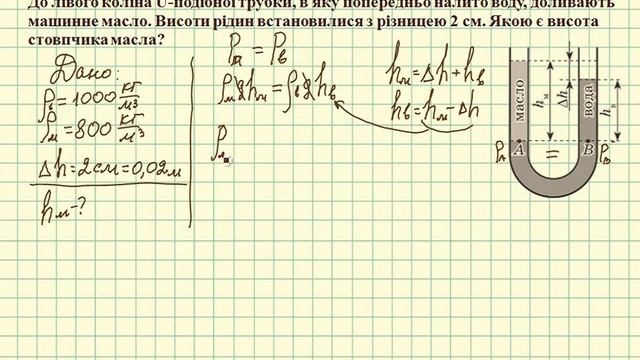 До лівого коліна U-подібної трубки, в яку попередньо налито воду, доливають
машинне масло. Висоти рідин встановилися з різницею 2 см. Якою є висота
стовпчика масла?
Дано:
ρв = 1000 кг/м³
ρм = 800 кг/м³
Δh = 2 см = 0,02 м
hм - ?
PA = PB
ρм g hм = ρв g hв
ρм
hм = Δh + hв
hв = hм - Δh
масло
hм
Δh
вода
hв
PA A = B PB